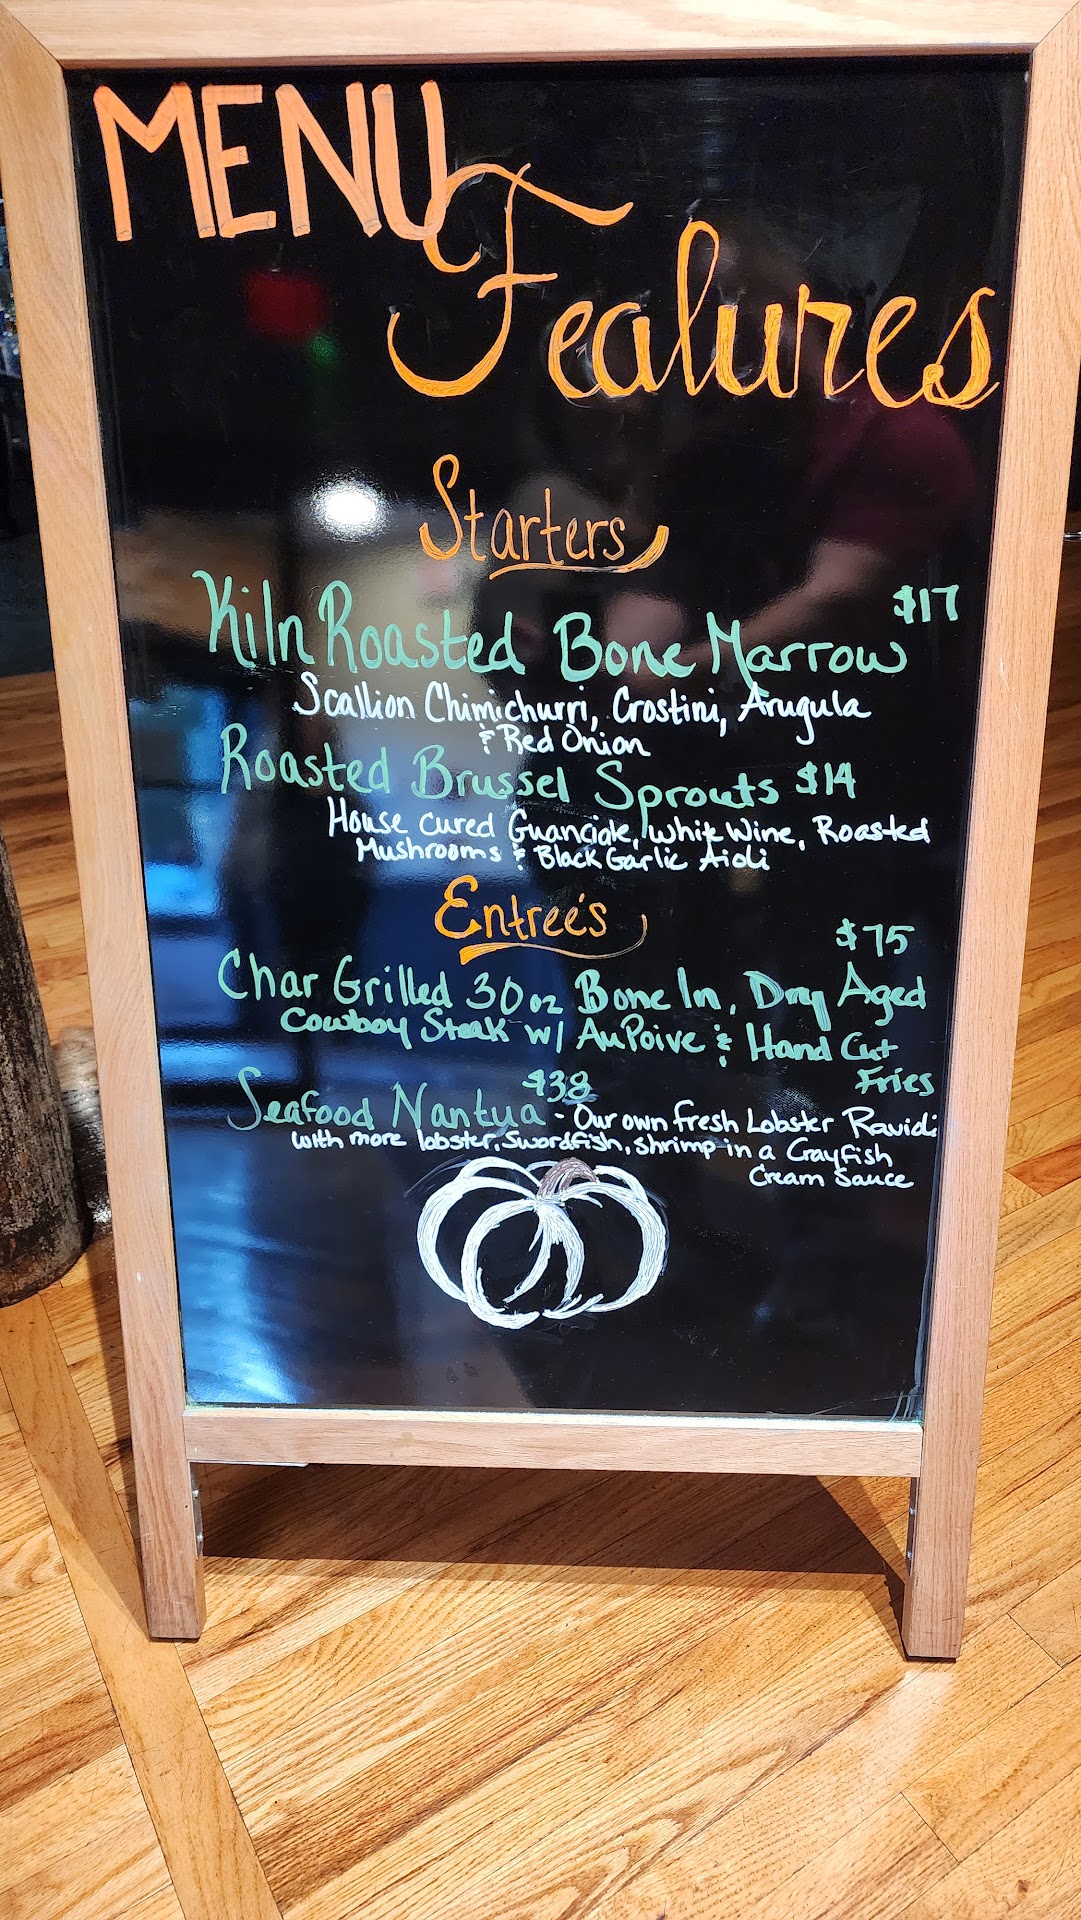 MENU
Features
Starters
Kiln Roasted Bone Marrow $17
Scallion Chimichurri, Crostini, Arugula
& Red Onion
Roasted Brussel Sprouts $14
House cured Guanciale, White Wine, Roasted
Mushrooms & Black Garlic Aioli
Entree's
$75
Char Grilled 30oz Bone In, Dry Aged
Cowboy Steak w/ AuPoive & Hand Cut
Fries
$38
Seafood Nantua - Our own fresh Lobster Ravioli
with more lobster, Swordfish, shrimp in a Crayfish
Cream Sauce